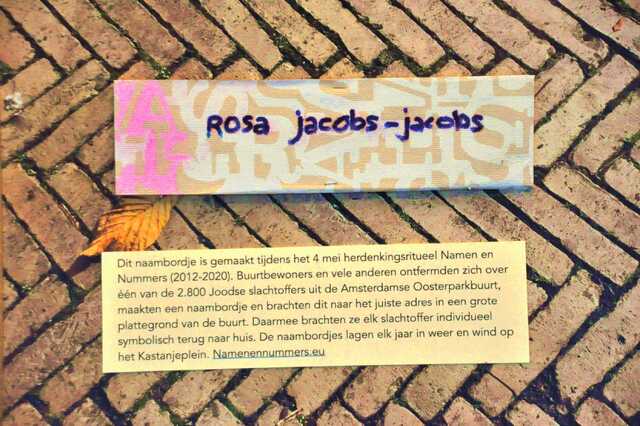 Rosa jacobs-jacobs
Dit naambordje is gemaakt tijdens het 4 mei herdenkingsritueel Namen en
Nummers (2012-2020). Buurtbewoners en vele anderen ontfermden zich over
één van de 2.800 Joodse slachtoffers uit de Amsterdamse Oosterparkbuurt,
maakten een naambordje en brachten dit naar het juiste adres in een grote
plattegrond van de buurt. Daarmee brachten ze elk slachtoffer individueel
symbolisch terug naar huis. De naambordjes lagen elk jaar in weer en wind op
het Kastanjeplein. Namenennummers.eu